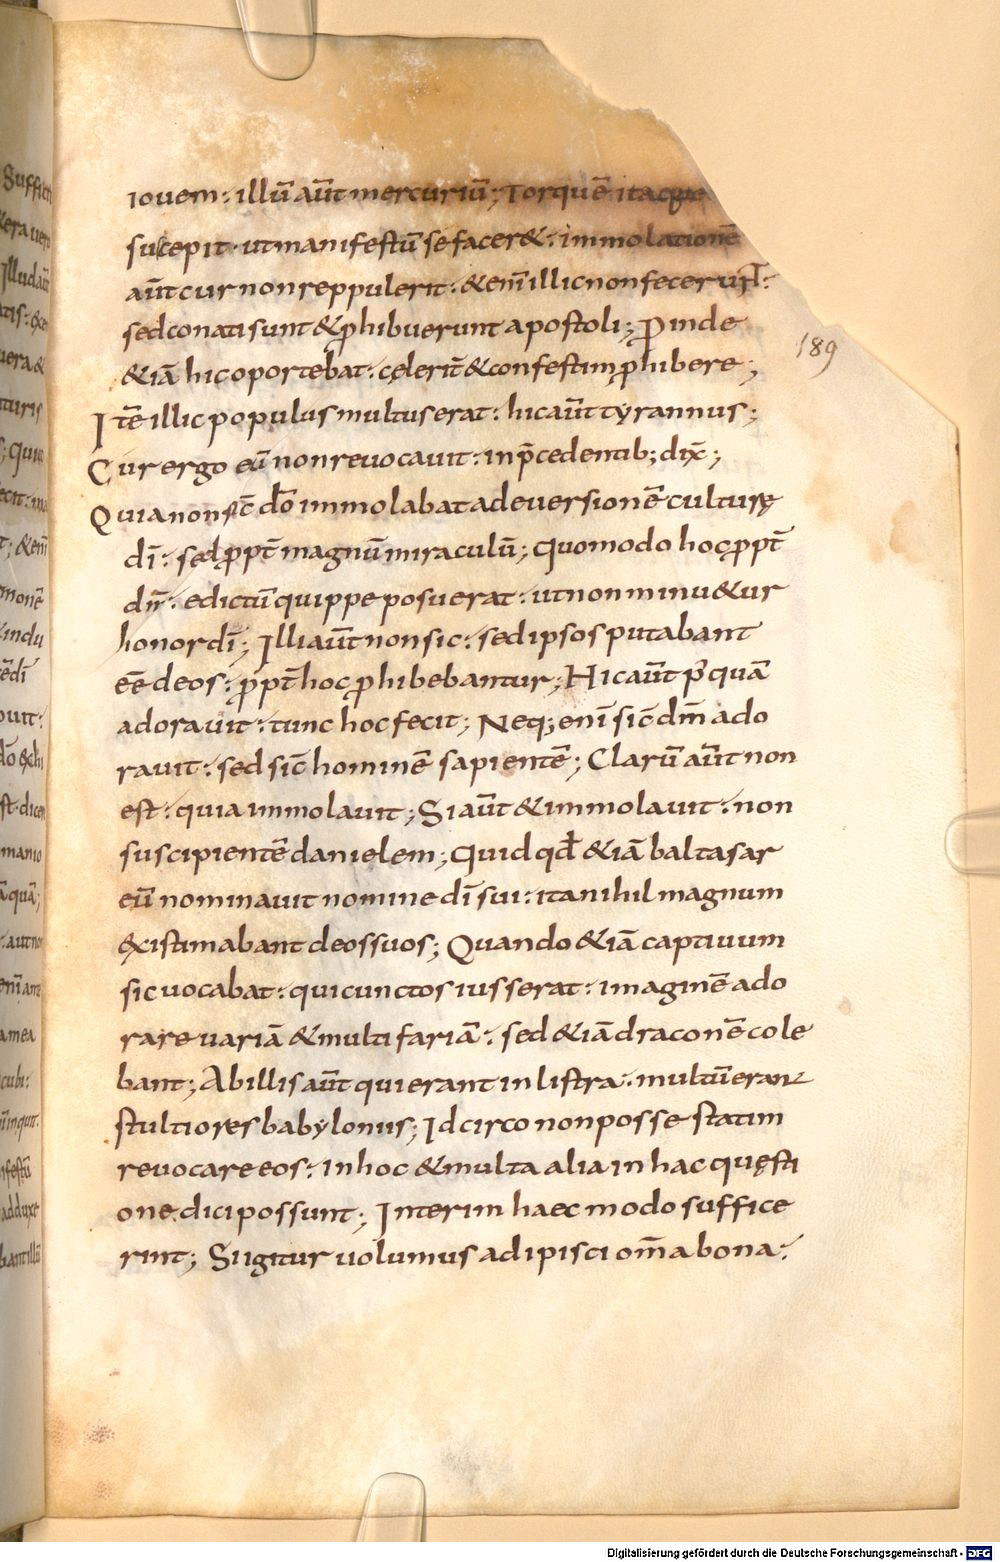 iovem : illū aūt mercuriū ; Torquē itaque
suscepit · ut manifestū se facer& : immolationē
aūt cur non reppulerit : & eni̅ illic non fecerunt :
sed conati sunt & ꝓhibuerunt apostoli ; Proinde
189
& iā hic oportebat : cęlerit̄ & confestim ꝓhibere ;
Itē illic populus multus erat : hic aūt tyrannus ;
Cur ergo eū non revocavit : in p̄cedentib; dix̄ ;
Quia non sic̄ dō immolabat ad eversionē culturę
dī : sed ꝓpt̄ magnū miraculū ; Quomodo hoc ꝓpt̄
dm̄ : edictū quippe posuerat : ut non minu&ur
honor dī ; Illi aūt non sic : sed ipsos putabant
eē deos : ꝓpt̄ hoc ꝓhibebantur ; Hic aūt p̄quā
adoravit : tunc hoc fecit ; Neq; enī sic̄ dm̄ ado
ravit : sed sic̄ hominē sapientē ; Clarū aūt non
est : quia immolavit ; Si aūt & immolavit : non
suscipientē danielem ; Quid qd̄ & iā baltasar
eū nominavit nomine dī sui : ita nihil magnum
ęxistimabant deos suos ; Quando & iā captivum
sic vocabat : qui cunctos iusserat : imaginē ado
rare variā & multifariā : sed & iā draconē cole
bant ; Ab illis aūt qui erant in listra : multū erant
stultiores babylonus ; Idcirco non posse statim
revocare eos : in hoc & multa alia in hac quęsti
one dici possunt ; Interim haec modo suffice
rint ; Si igitur volumus adipisci om̄a bona :
Digitalisierung gefördert durch die Deutsche Forschungsgemeinschaft - DFG